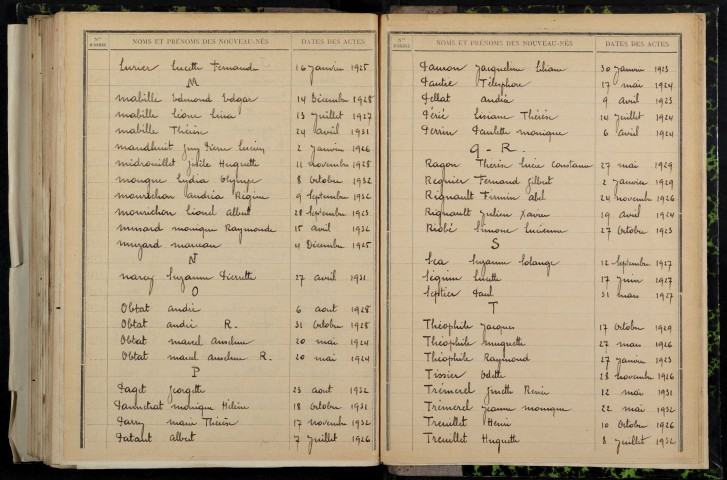 Nos D'ORDRE NOMS ET PRÉNOMS DES NOUVEAU-NÉS DATES DES ACTES
Lurier Lucette Fernande 16 Janvier 1925
M
Mabille Edmond Edgar 14 Décembre 1928
Mabille Léone Lina 13 Juillet 1927
Mabille Thérèse 24 avril 1931
Maudhuit Guy Pierre Lucien 2 Janvier 1926
Midrouillet Gisèle Huguette 11 novembre 1928
Mongne Lydia Olympe 8 Octobre 1932
Mourichon Andréa Régine 9 Septembre 1932
Mourichon Lionel Albert 28 Septembre 1923
Munard Monique Raymonde 15 avril 1932
Muzard Marceau 4 Décembre 1925
N
Narcy Suzanne Pierrette 27 avril 1931
O
Obtat André 6 aout 1928
Obtat André R. 31 Octobre 1928
Obtat Marcel Anselme 20 mai 1924
Obtat Marcel Anselme R. 20 mai 1924
P
Paget Georgette 23 aout 1932
Pannetrat Monique Hélène 18 Octobre 1931
Parry Marie Thérèse 17 novembre 1932
Patant Albert 7 Juillet 1926
Nos D'ORDRE NOMS ET PRÉNOMS DES NOUVEAU-NÉS DATES DES ACTES
Jacqueline Liliane 30 Janvier 1923
Pautre Télesphore 17 mai 1924
Pellat André 9 avril 1923
Liliane Thérèse 14 Juillet 1924
Perrin Paulette Monique 6 avril 1924
Q - R.
Ragon Thérèse Lucie Constance 27 mai 1929
Regnier Fernand Gilbert 2 Janvier 1929
Rignault Firmin Abel 24 novembre 1926
Rignault Julien Xavier 19 avril 1924
Riobé Simone Lucienne 27 Octobre 1923
S
Sea Suzanne Solange 12 Septembre 1927
Séguin Lucette 17 Juin 1927
Septier Paul 31 mars 1927
T
Théophile Jacques 17 octobre 1929
Théophile Muguette 27 mars 1926
Théophile Raymond 27 Janvier 1923
Tissier Odette 28 novembre 1926
Trémerel Ginette Renée 12 mai 1931
Trémerel Jeanne Monique 22 mai 1932
Treuillet Henri 10 Octobre 1926
Treuillet Huguette 8 Juillet 1932